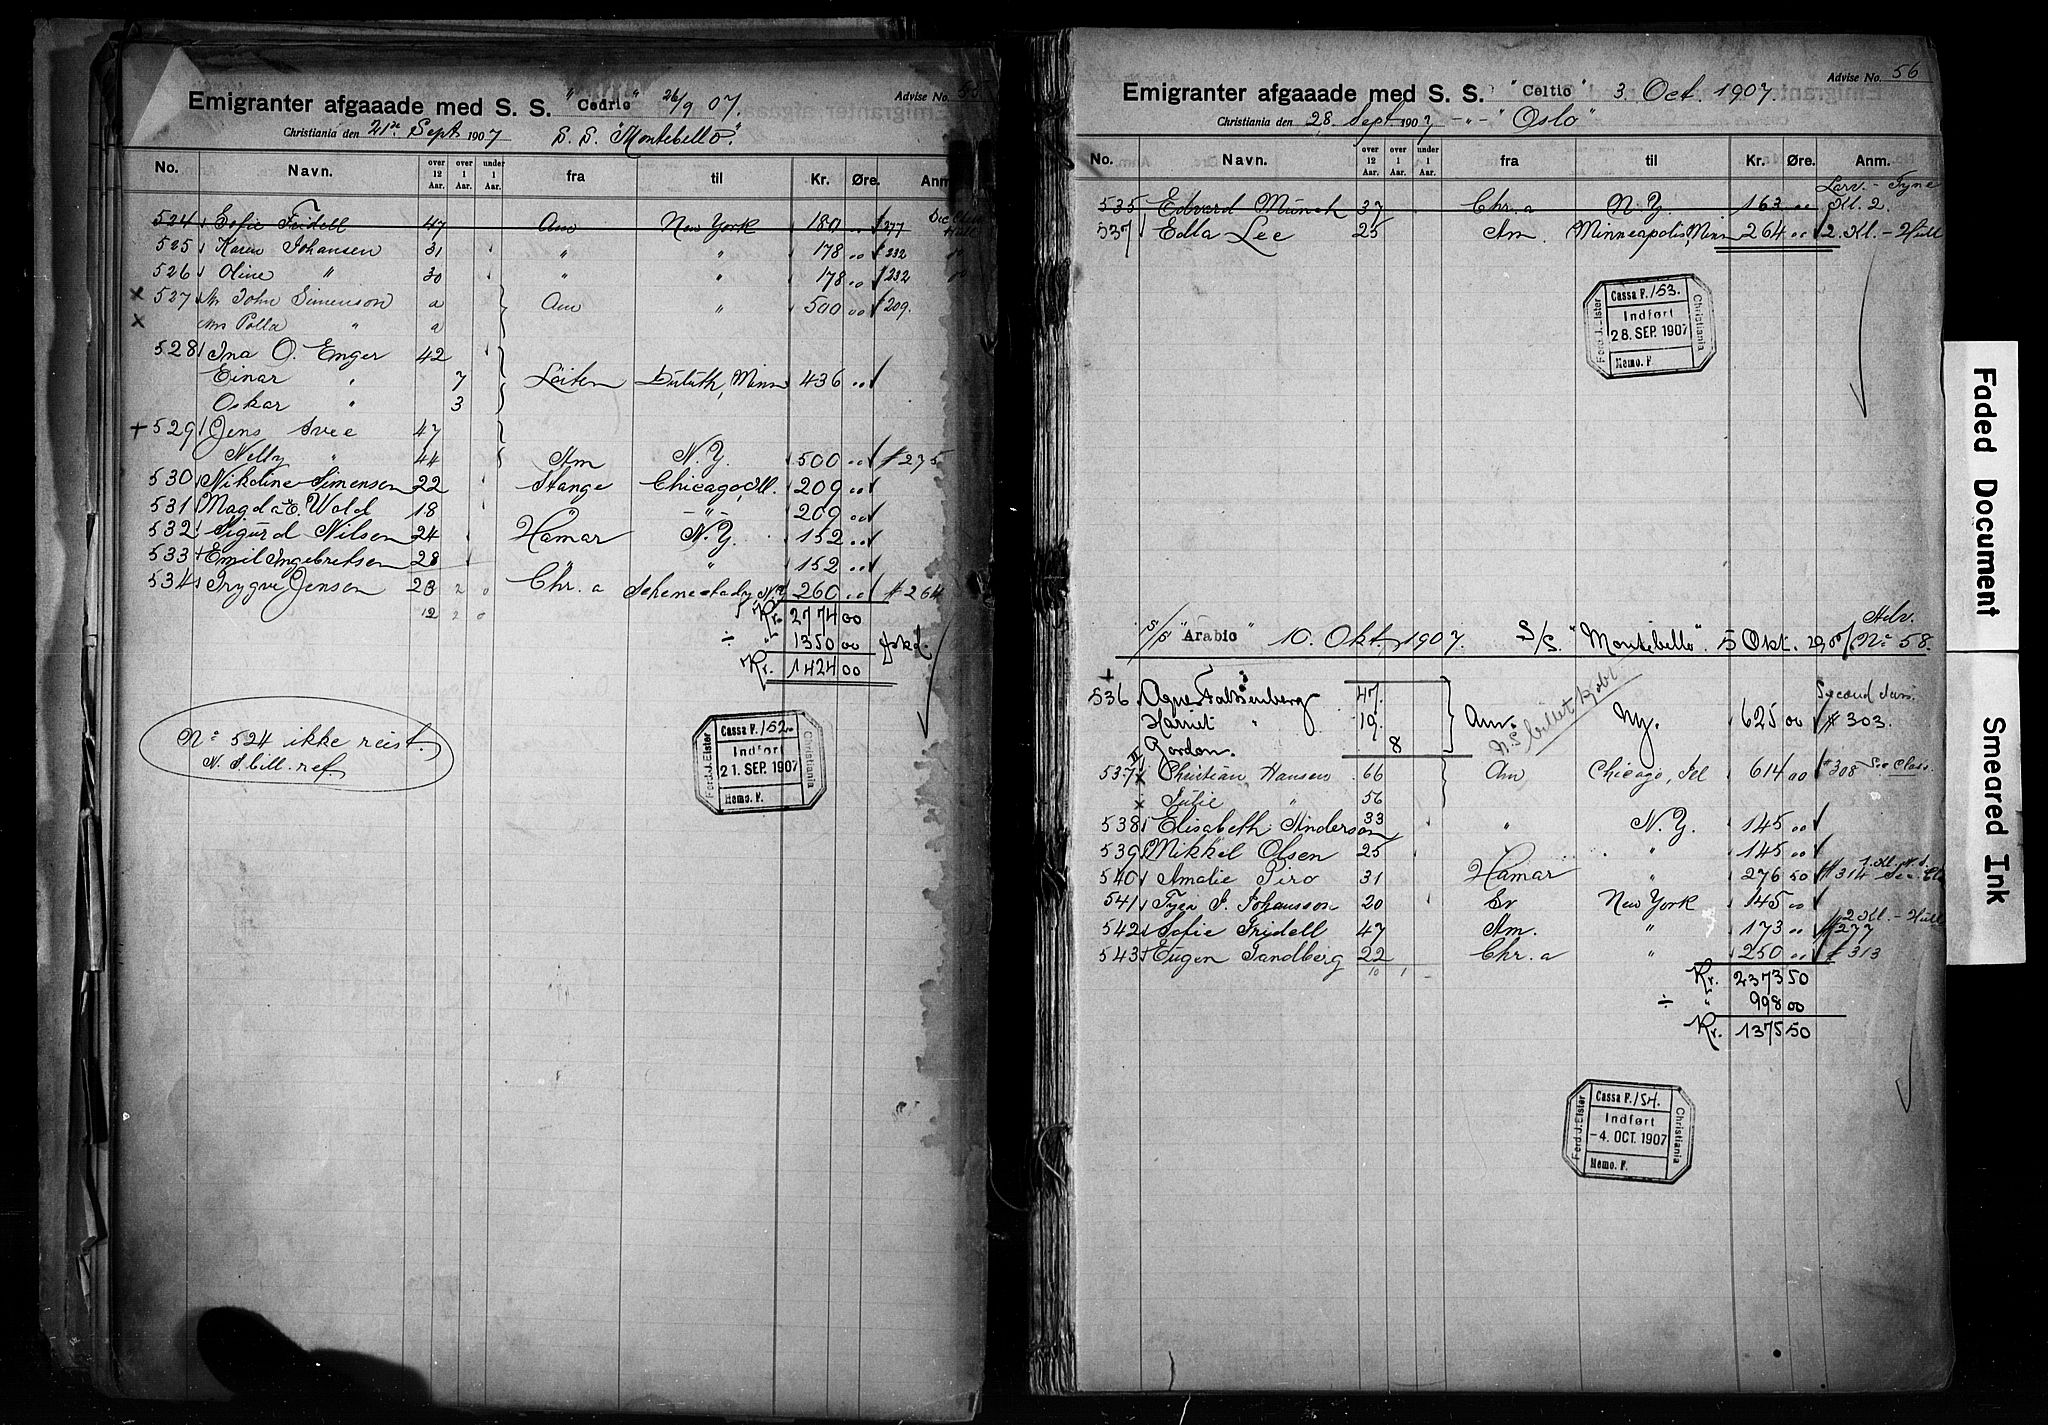 Emigranter afgaaade med S. S. "Cedric" 26/9 07. Advise No.
Christiania den 21de Sept 1907 S. S. "Montebello".
No. Navn. over 12 Aar. over 1 Aar. under 1 Aar. fra til Kr. Øre. Anm
524 Sofie Fridell 47 Am New York 180 " # 277
525 Karen Johansen 31 " " 178 " # 232
526 Oline " 30 " " 178 " # 232
× 527 Mr John Simenson a Am " 500 00 # 209.
× Mrs Polla " a
528 Ina O. Enger 42
Einar " 7 Leiten Duluth, Minn 436 "
Oskar " 3
+ 529 Jens Svee 47
Nelly " 44 Am N.Y. 500 " # 275
530 Nikoline Simensen 22 Stange Chicago, Ill. 209 "
531 Magda E. Wold 18 -"- 209 "
532 Sigurd Nilsen 24 Hamar N.Y. 152 "
533 Emil Ingebretsen 28 " " 152 "
534 Trygve Jensen 23 2 0 Chr.a Schenectady N.Y. 260 " # 264
12 2 0
Kr. 2774 00
÷ " 1350 00
Kr. 1424 00
No 524 ikke reist.
N. S. bill. ref.
Cassa F. 152.
Indført
21. SEP. 1907
Memo. F.
Ferd. J. Elster
Christiania
Emigranter afgaaade med S. S. "Celtic" 3. Oct. 1907. Advise No. 56
Christiania den 28 Sept 1907 -"- "Oslo"
No. Navn. over 12 Aar. over 1 Aar. under 1 Aar. fra til Kr. Øre. Anm.
Larv. - Tyne
535 Edvard Münch 37 Chr.a N.Y. 163 00 Kl. 2.
537 Edla Lee 25 Am. Minneapolis, Minn 264 00 2. Kl. - Hull
Cassa F. 153.
Indført
28 SEP. 1907
Memo. F.
Ferd. J. Elster
Christiania
Adv.
S/S "Arabic" 10. Okt. 1907. S/S. "Montebello" 5 Okt. 1907 No 58.
+
536 Agnes Falkenberg 47. Second
Harriet " 19. Am. Ny. 625 00 # 303.
Gordon. 8
N.S. billet kjøbt
537 II × Christian Hansen 66 Am Chicago, Ill 614 00 # 308 Sec Class.
× Julie " 56
538 Elisabeth Anderson 33 " N.Y. 145 00
539 Mikkel Olsen 25 " " 145 00
1. Kl. N. S.
540 Amalie Piro 31 Hamar " 276 50 # 314 Sec. Cl
541 Tyra J. Johansson 20 Sv New York 145 00
2 Kl. - Hull
542 Sofie Fridell 47 Am. " 173 00 # 277
543 Eugen Sandberg 22 Chr.a " 250 00 # 313
10 1 -
Kr. 2373 50
÷ " 998 00
Kr. 1375 50
Cassa F. 154.
Indført
-4. OCT. 1907
Memo. F.
Ferd. J. Elster
Christiania
Faded Document
Smeared Ink